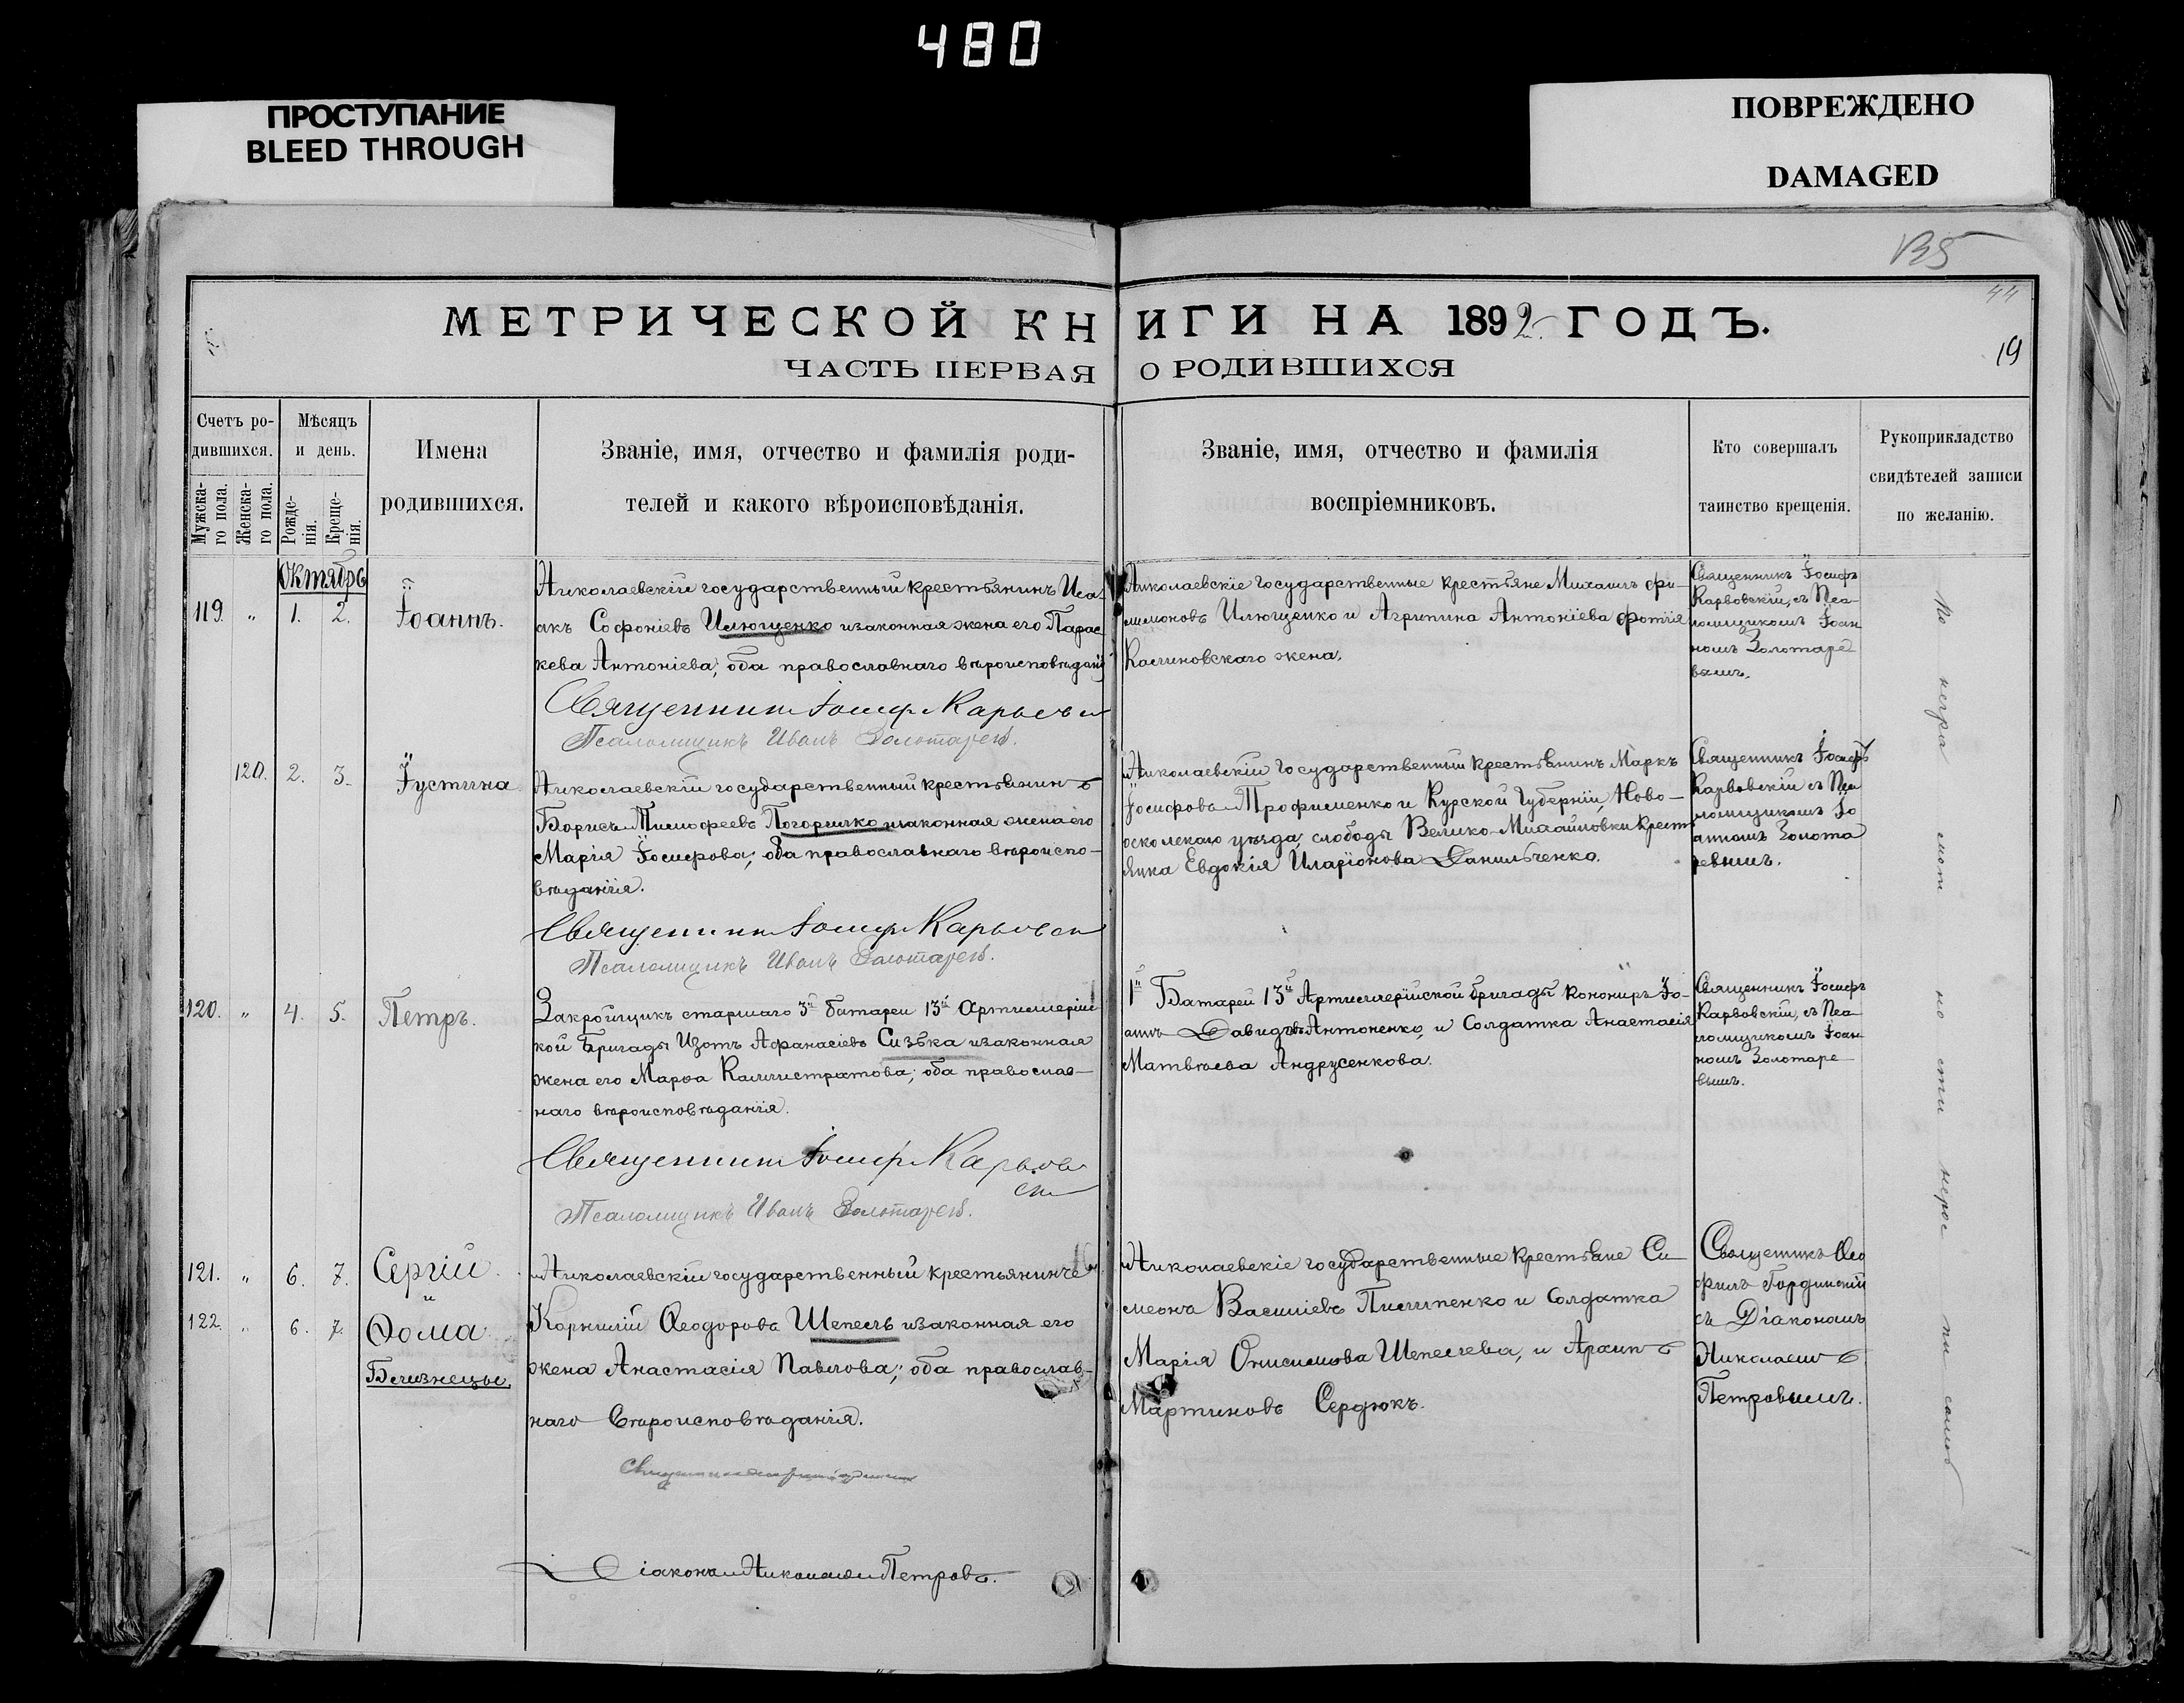 480
ПРОСТУПАНИЕ
BLEED THROUGH
ПОВРЕЖДЕНО
DAMAGED
135
44
19
МЕТРИЧЕСКОЙ КНИГИ НА 1892 ГОДЪ.
ЧАСТЬ ПЕРВАЯ О РОДИВШИХСЯ
Счетъ ро-
дившихся.
Мужска-
го пола.
Женска-
го пола.
Мѣсяцъ
и день.
Рожде-
нія.
Креще-
нія.
Имена
родившихся.
Званіе, имя, отчество и фамилія роди-
телей и какого вѣроисповѣданія.
Званіе, имя, отчество и фамилія
воспріемниковъ.
Кто совершалъ
таинство крещенія.
Рукоприкладство
свидѣтелей записи
по желанію.
Октябрь
119. „ 1. 2. Іоаннъ.
Николаевскій государственный крестьянинъ Иса-
акъ Софоніевъ Илющенко и законная жена его Парас
кева Антоніева; оба православнаго вѣроисповѣданія
Священникъ Іосифъ Карвовскій
Псаломщикъ Иванъ Золотаревъ.
Николаевскіе государственные крестьяне Михаилъ Фи-
лимоновъ Илющенко и Агрипина Антоніева Фотія
Калиновскаго жена.
Священникъ Іосифъ
Карвовскій, съ Пса-
ломщикомъ Іоан
номъ Золотаре-
вымъ.
120. 2. 3. Іустина
Николаевскій государственный крестьянинъ
Борисъ Тимофеевъ Погорилко и законная жена его
Марія Іосифова; оба православнаго вѣроиспо-
вѣданія.
Священникъ Іосифъ Карвовскій
Псаломщикъ Иванъ Золотаревъ.
Николаевскій государственный крестьянинъ Маркъ
Іосифовъ Трофименко и Курской Губерніи, Ново-
оскольскаго уѣзда, слободы Велико-Михайловки крестъ
янка Евдокія Иларіонова Данильченко.
Священникъ Іосифъ
Карвовскій съ Пса
ломщикомъ Іо
анномъ Золота
ревымъ.
120. „ 4. 5. Петръ.
Закройщикъ старшаго 3й батареи 13й Артиллерійс
кой Бригады Изотъ Афанасіевъ Сизька и законная
жена его Марѳа Каллистратова; оба православ-
наго вѣроисповѣданія.
Священникъ Іосифъ Карвов
скій
Псаломщикъ Иванъ Золотаревъ.
1й Батареи 13й Артиллерійской бригады канониръ Іо-
аннъ Давидовъ Антоненко, и Солдатка Анастасія
Матвѣева Андрусенкова.
Священникъ Іосифъ
Карвовскій, съ Пса
ломщикомъ Іоан-
номъ Золотаре-
вымъ.
121. „ 6. 7. Сергій
и
122. „ 6. 7. Ѳома
Близнецы.
Николаевскій государственный крестьянинъ
Корнилій Ѳеодоровъ Шепель и законная его
жена Анастасія Павлова; оба православ-
наго вѣроисповѣданія.
Діаконъ Николай Петровъ.
Николаевскіе государственные крестьяне Си-
меонъ Василіевъ Пилипенко и Солдатка
Марія Онисимова Шепелева, и Архипъ
Мартиновъ Сердюкъ.
Священникъ Ѳео
филъ Гординскій
съ Діакономъ
Николаемъ
Петровымъ.